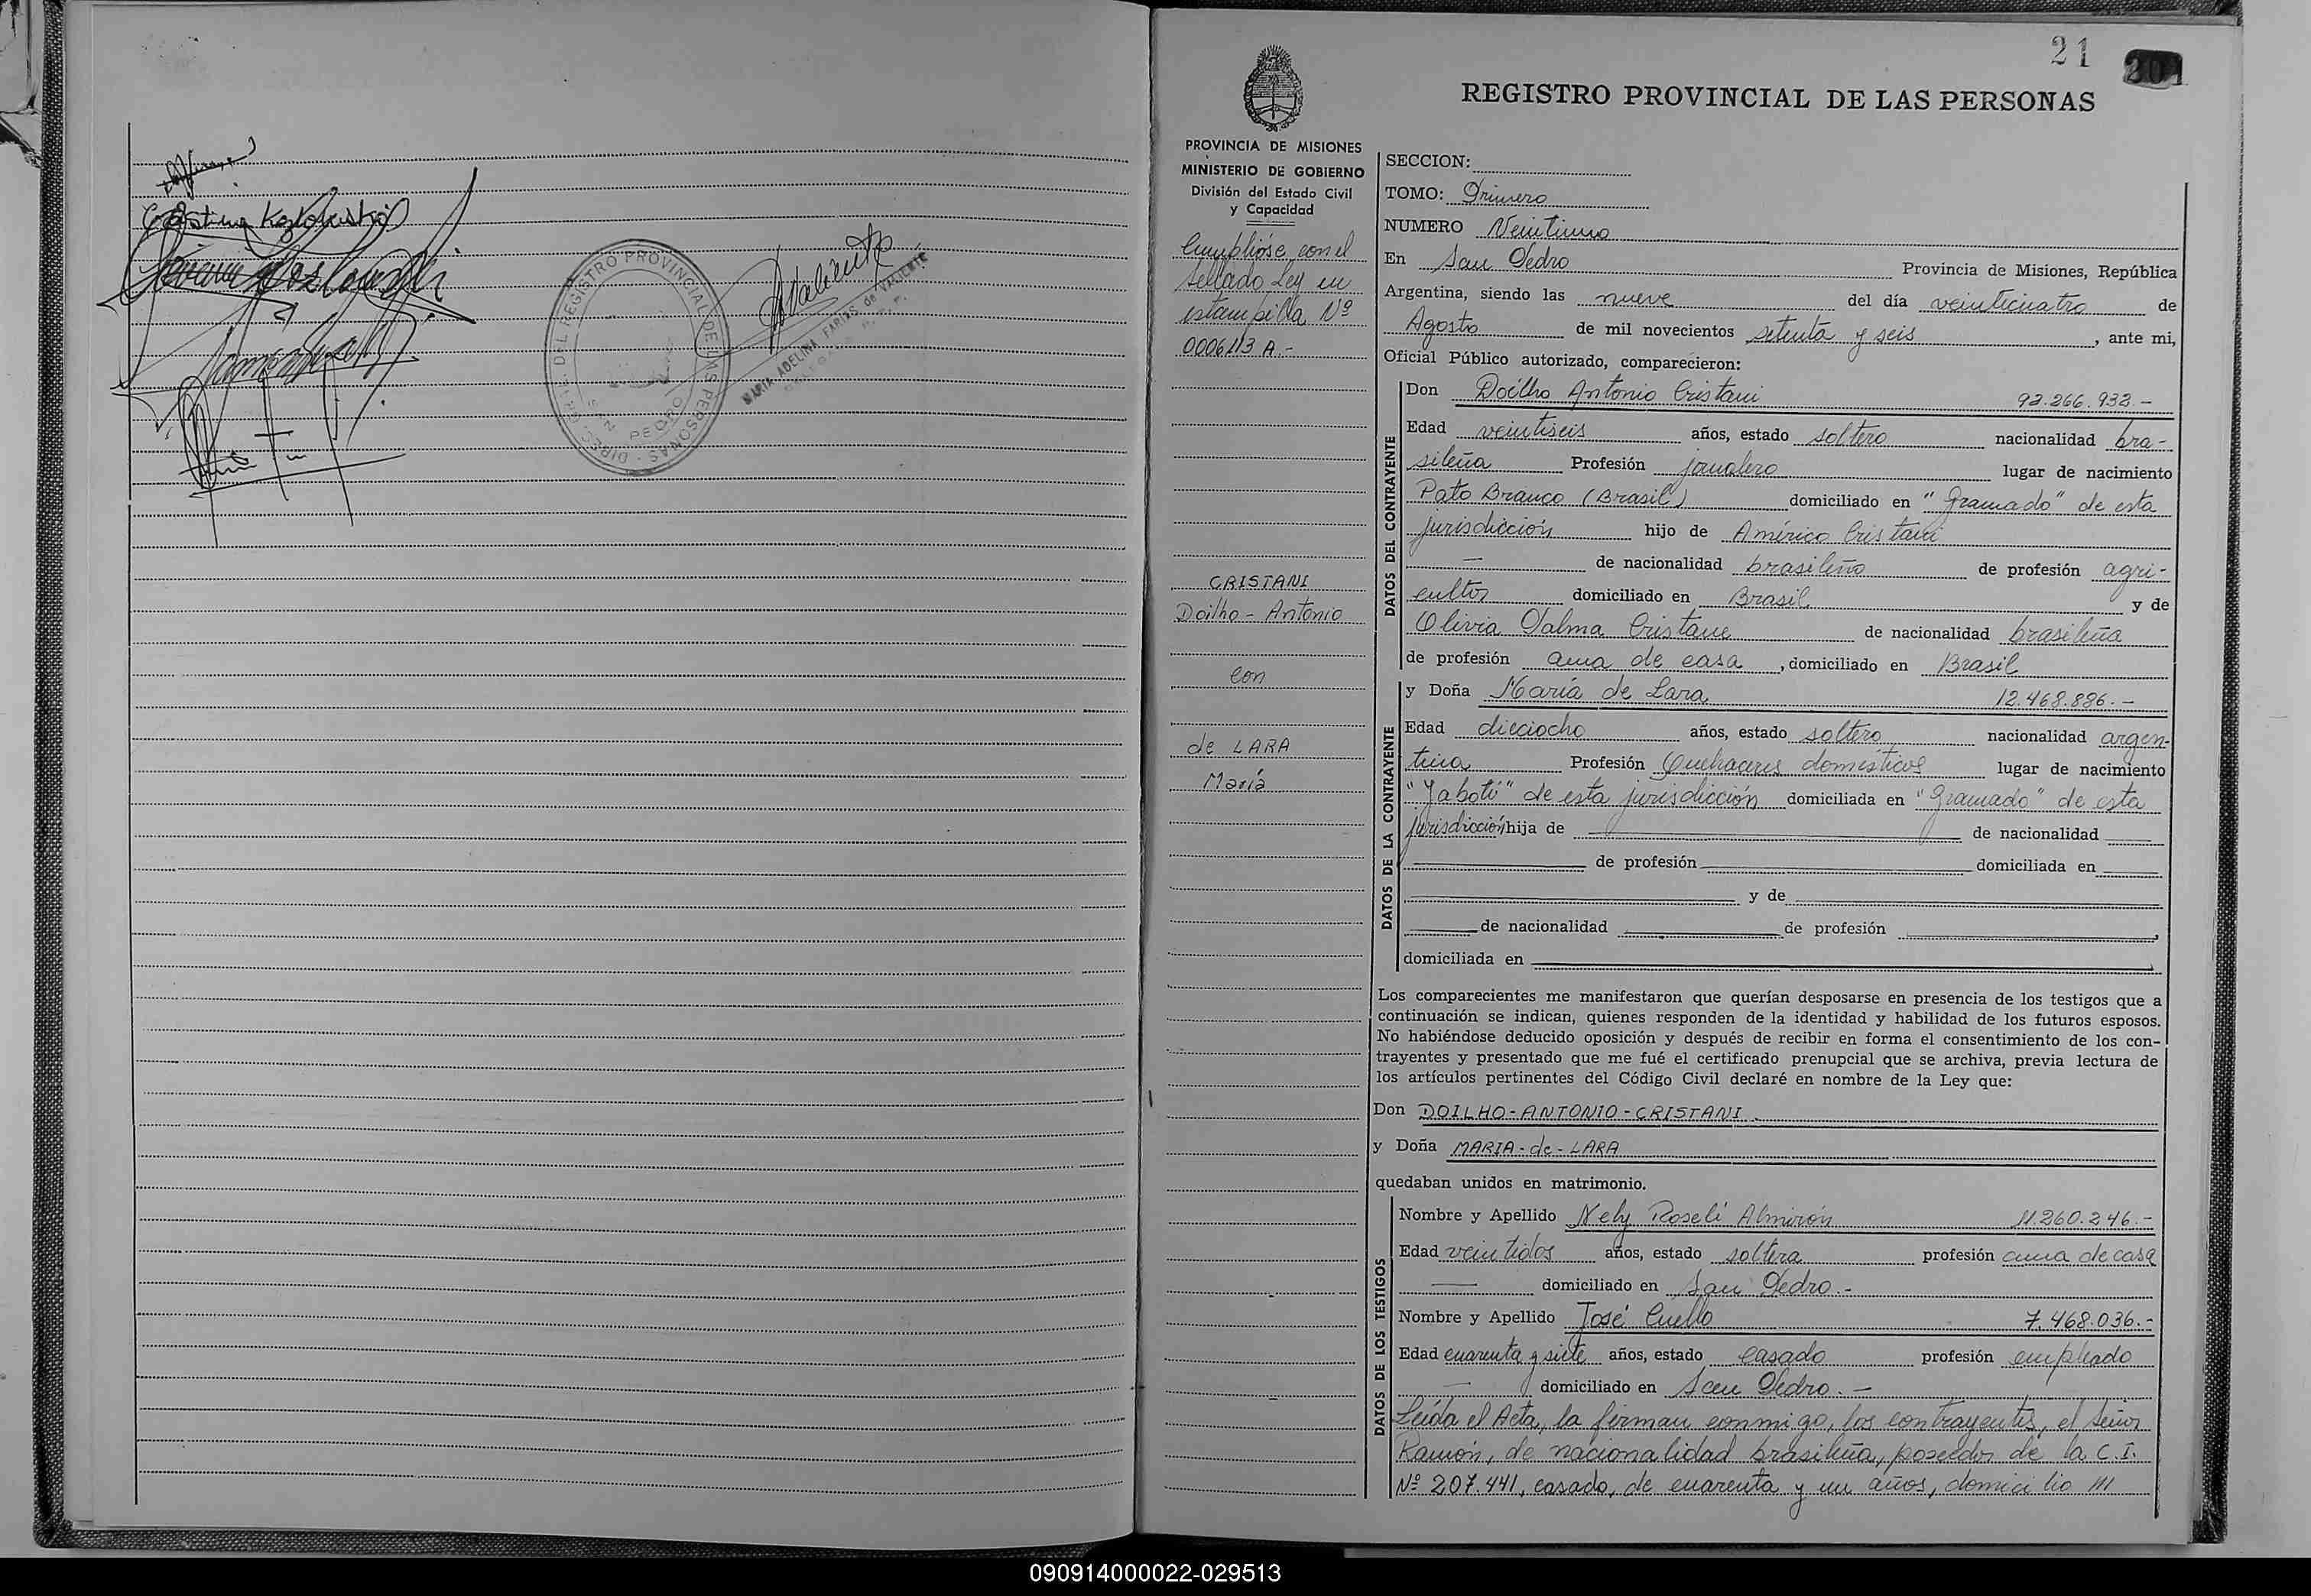 Cristina Kozlowski
DIREC. GRAL. DEL REGISTRO PROVINCIAL DE LAS PERSONAS
SAN PEDRO
MARIA ADELINA FARIAS de VALIENTE
21
201
REGISTRO PROVINCIAL DE LAS PERSONAS
PROVINCIA DE MISIONES
MINISTERIO DE GOBIERNO
División del Estado Civil
y Capacidad
Cumplióse con el
sellado Ley en
estampilla Nº
0006113 A.-
CRISTANI
Doilho - Antonio
con
de LARA
María
SECCION:
TOMO: Primero
NUMERO Veintiuno
En San Pedro Provincia de Misiones, República
Argentina, siendo las nueve del día veinticuatro de
Agosto de mil novecientos setenta y seis, ante mi,
Oficial Público autorizado, comparecieron:
DATOS DEL CONTRAYENTE
Don Doilho Antonio Cristani 92.266.932.-
Edad veintiseis años, estado soltero nacionalidad bra-
sileña Profesión jornalero lugar de nacimiento
Pato Branco (Brasil) domiciliado en "Gramado" de esta
jurisdicción hijo de Américo Cristani
— de nacionalidad brasileño de profesión agri-
cultor domiciliado en Brasil y de
Olivia Dalma Cristane de nacionalidad brasileña
de profesión ama de casa, domiciliado en Brasil
DATOS DE LA CONTRAYENTE
y Doña María de Lara 12.468.886.-
Edad dieciocho años, estado soltero nacionalidad argen-
tina Profesión Quehaceres domésticos lugar de nacimiento
"Yabotí" de esta jurisdicción domiciliada en "Gramado" de esta
jurisdicción hija de de nacionalidad
de profesión domiciliada en
y de
de nacionalidad de profesión
domiciliada en
Los comparecientes me manifestaron que querían desposarse en presencia de los testigos que a
continuación se indican, quienes responden de la identidad y habilidad de los futuros esposos.
No habiéndose deducido oposición y después de recibir en forma el consentimiento de los con-
trayentes y presentado que me fué el certificado prenupcial que se archiva, previa lectura de
los artículos pertinentes del Código Civil declaré en nombre de la Ley que:
Don DOILHO-ANTONIO-CRISTANI
y Doña MARIA-de-LARA
quedaban unidos en matrimonio.
DATOS DE LOS TESTIGOS
Nombre y Apellido Nely Roselí Almirón 11.260.246.-
Edad veintidos años, estado soltera profesión ama de casa
— domiciliado en San Pedro.-
Nombre y Apellido José Cuello 7.468.036.-
Edad cuarenta y siete años, estado casado profesión empleado
— domiciliado en San Pedro.-
Leída el Acta, la firman conmigo, los contrayentes, el señor
Ramón, de nacionalidad brasileña, poseedor de la C.I.
Nº 207.441, casado, de cuarenta y un años, domicilio ///
090914000022-029513